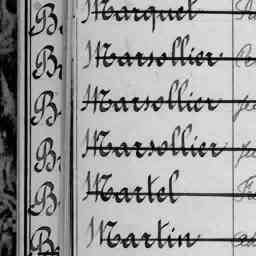 B. Marquet
B. Marsollier
B. Marsollier
B. Marsollier
B. Martel
B. Martin